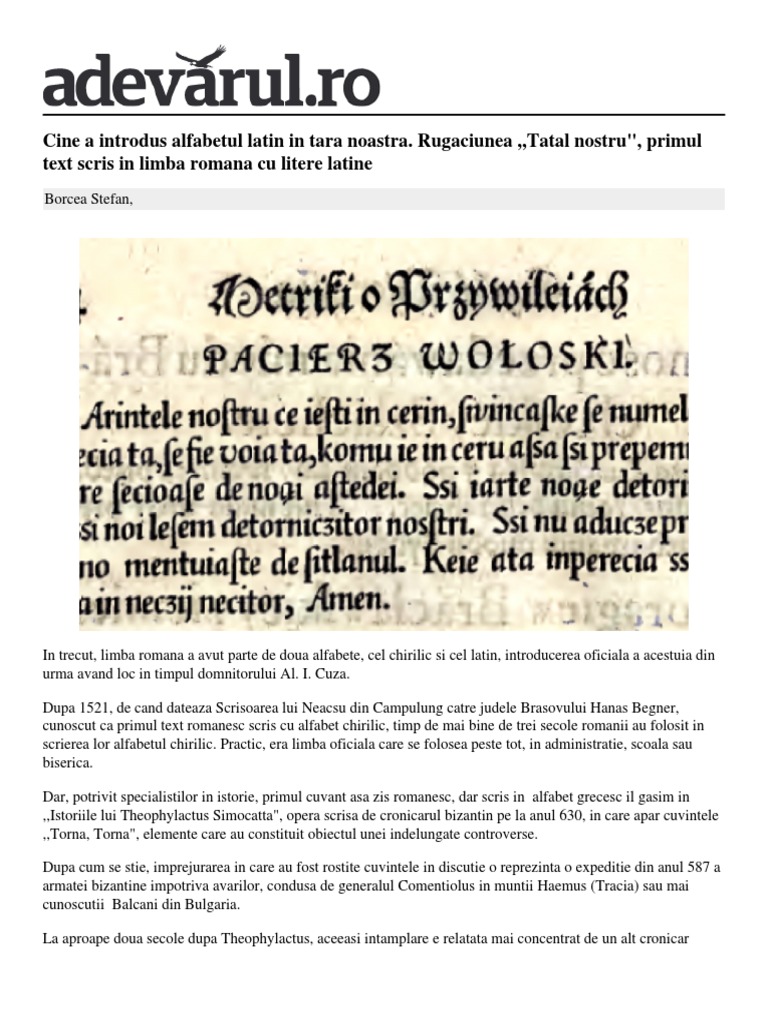 adevărul.ro
Cine a introdus alfabetul latin in tara noastra. Rugaciunea ,,Tatal nostru", primul
text scris in limba romana cu litere latine
Borcea Stefan,
Metriki o Przywileiách
PACIERZ WOŁOSKI.
Arintele noſtru ce ieſti in cerin, ſivincaſke ſe numel
ecia ta, ſe fie voia ta, komu ie in ceru aſsa ſsi prepemn
re ſecioaſe de nogi aſtedei. Ssi iarte noge detori
si noi leſem detorniczitor noſtri. Ssi nu aducze pr
no mentuiaſte de ſitlanul. Keie ata inperecia ss
a in neczij necitor, Amen.
In trecut, limba romana a avut parte de doua alfabete, cel chirilic si cel latin, introducerea oficiala a acestuia din
urma avand loc in timpul domnitorului Al. I. Cuza.
Dupa 1521, de cand dateaza Scrisoarea lui Neacsu din Campulung catre judele Brasovului Hanas Begner,
cunoscut ca primul text romanesc scris cu alfabet chirilic, timp de mai bine de trei secole romanii au folosit in
scrierea lor alfabetul chirilic. Practic, era limba oficiala care se folosea peste tot, in administratie, scoala sau
biserica.
Dar, potrivit specialistilor in istorie, primul cuvant asa zis romanesc, dar scris in alfabet grecesc il gasim in
,,Istoriile lui Theophylactus Simocatta", opera scrisa de cronicarul bizantin pe la anul 630, in care apar cuvintele
,,Torna, Torna", elemente care au constituit obiectul unei indelungate controverse.
Dupa cum se stie, imprejurarea in care au fost rostite cuvintele in discutie o reprezinta o expeditie din anul 587 a
armatei bizantine impotriva avarilor, condusa de generalul Comentiolus in muntii Haemus (Tracia) sau mai
cunoscutii Balcani din Bulgaria.
La aproape doua secole dupa Theophylactus, aceeasi intamplare e relatata mai concentrat de un alt cronicar